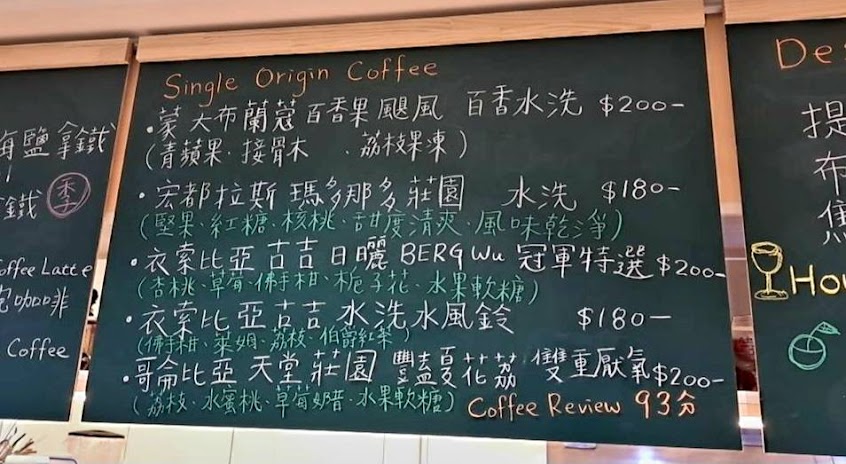 海鹽拿鐵
鐵 季
Coffee Latte
咖啡
Coffee
Single Origin Coffee
·蒙 大布蘭蔻百香果颶風 百香水洗 $200-
(青蘋果、接骨木 、荔枝果凍)
·宏都拉斯 瑪多那多莊園 水洗 $180-
(堅果、紅糖、核桃、甜度清爽、風味乾淨)
·衣索比亞 古吉 日曬 BERG Wu 冠軍特選 $200-
(杏桃、草莓、佛手柑、梔子花、水果軟糖)
·衣索比亞古吉 水洗 水風鈴 $180-
(佛手柑、萊姆、荔枝、伯爵紅茶)
·哥倫比亞 天堂莊園 豐蓋夏花荔 雙重厭氧 $200-
(荔枝、水蜜桃、草莓奶昔、水果軟糖) Coffee Review 93分
Des
提
布
焦
Hou